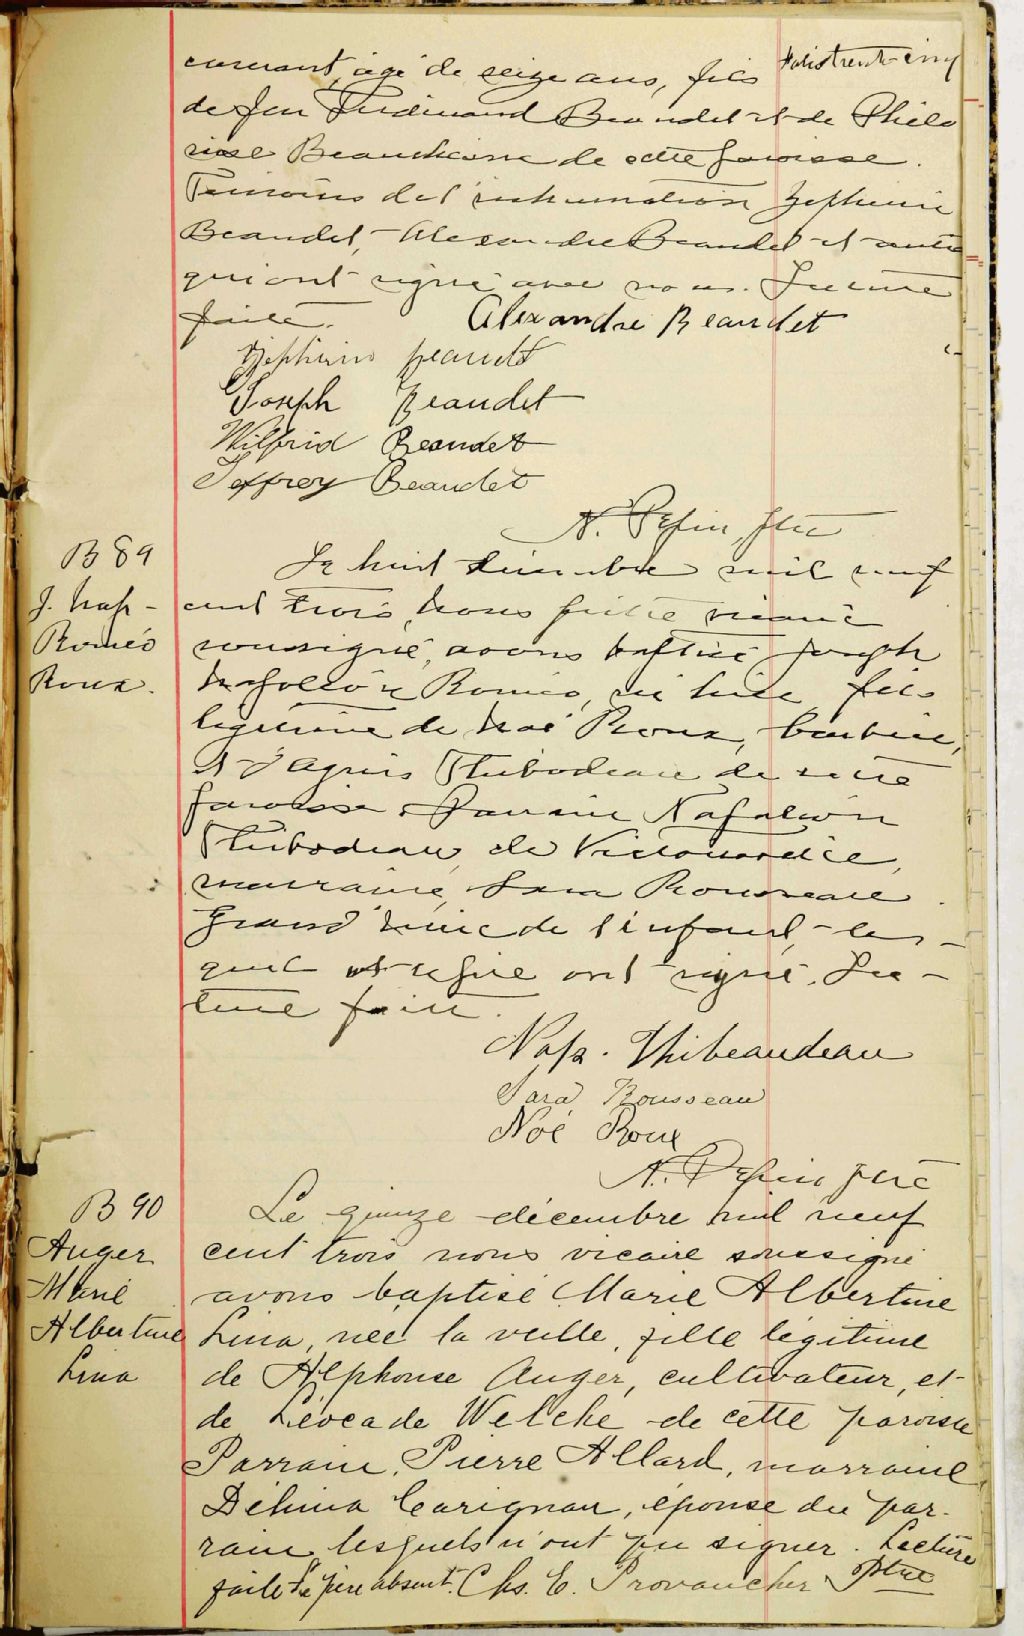 courant, agé de seize ans, fils
de Jean Ferdinand Beaudet et de Philo
mise Beauchesne de cette paroisse.
Temoins de l'inhumation Zephirin
Beaudet, Alexandre Beaudet et autres
qui ont signé avec nous. Lecture
faite. Alexandre Beaudet
Zephirin Beaudet
Joseph Beaudet
Wilfrid Beaudet
Jeffrey Beaudet
N. Pepin, ptre
B 89
J. Nap-
Roméo
Roux.
Le huit décembre mil neuf
cent trois, nous prêtre vicaire
soussigné, avons baptisé Joseph
Napoléon Roméo, né hier, fils
légitime de Noé Roux, barbier,
et d'Agnès Thibodeau de cette
paroisse. Parrain Napoléon
Thibodeau de Victoriaville,
marraine, Sara Rousseau
grand'mère de l'enfant, les-
quels et le père ont signé. Lec-
ture faite.
Nap. Thibeaudeau
Sara Rousseau
Noé Roux
N. Pepin ptre
B 90
Auger
Marie
Albertine
Lina
Le quinze décembre mil neuf
cent trois nous vicaire soussigné
avons baptisé Marie Albertine
Lina, née la veille, fille légitime
de Alphonse Auger, cultivateur, et
de Léocade Welche de cette paroisse
Parrain, Pierre Allard, marraine
Délima Carignan, épouse du par-
rain lesquels n'ont pu signer. Lecture
faite. Le père absent. Chs. E. Provancher Ptre